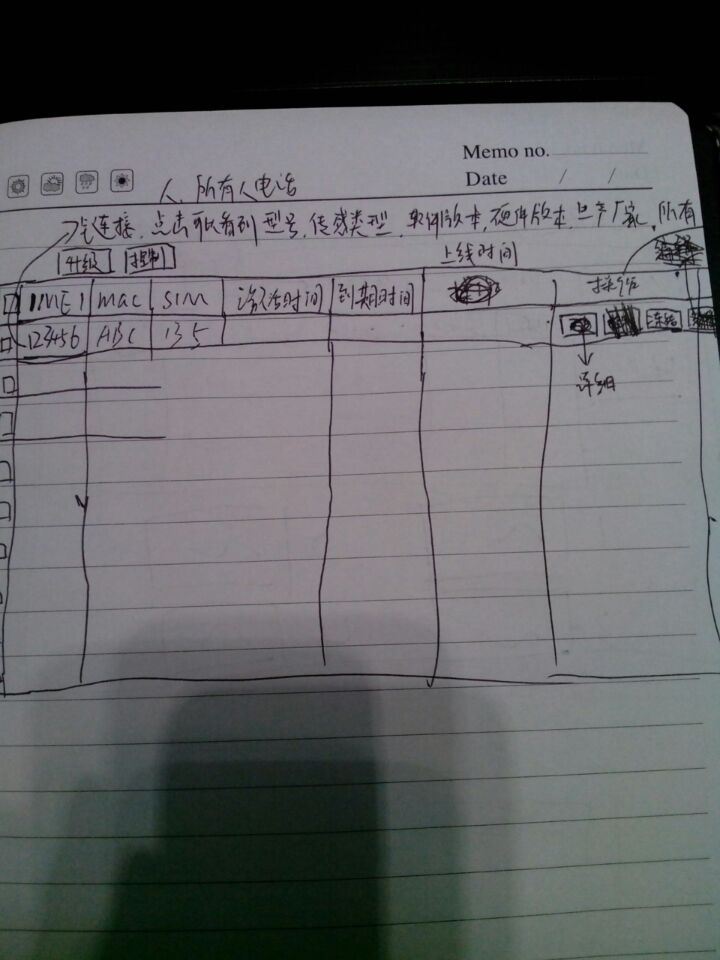 Memo no.
Date / /
人、所有人电话
连接，点击可以看到型号，传感类型，软件版本，硬件版本，生产厂家，所有
升级 控制 上线时间
IMEI MAC SIM 激活时间 到期时间 操作
123456 ABC 135 冻结
详细